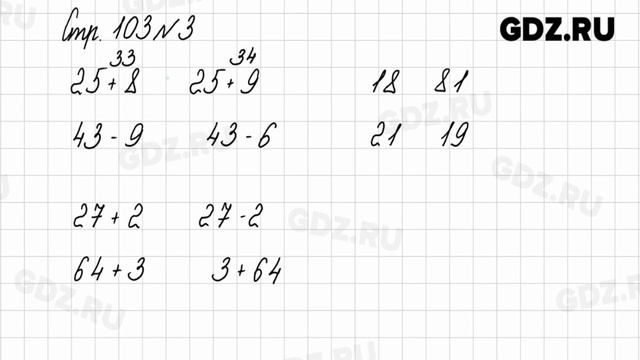 Стр. 103 №3
GDZ.RU
33 34
25+8 25+9 18 81
43-9 43-6 21 19
27+2 27-2
64+3 3+64
GDZ.RU
GDZ.RU
GDZ.RU
GDZ.RU
GDZ.RU
GDZ.RU